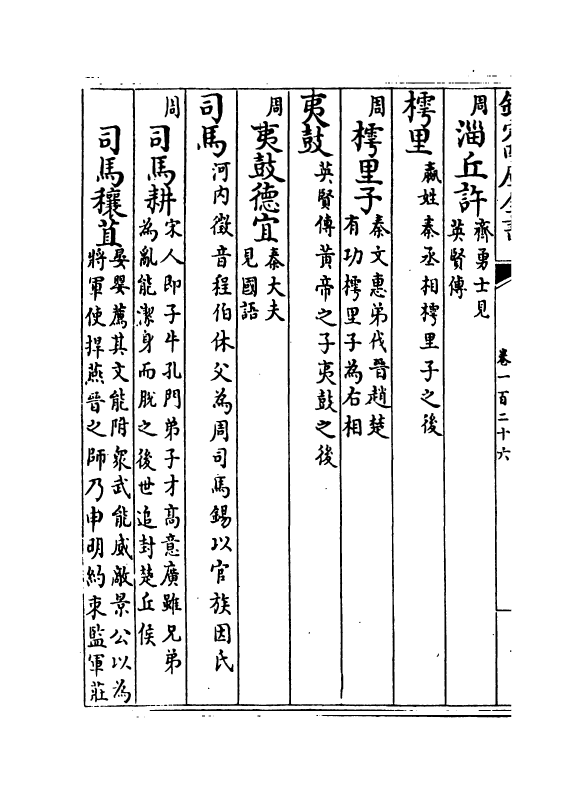 欽定四庫全書
卷一百二十六
周 淄丘訢 齊勇士見
英賢傳
樗里 嬴姓秦丞相樗里子之後
周 樗里子 秦文惠弟伐晉趙楚
有功樗里子為右相
夷鼓 英賢傳黄帝之子夷鼓之後
周 夷鼓德宜 秦大夫
見國語
司馬 河内徵音程伯休父為周司馬錫以官族因氏
周 司馬耕 宋人即子牛孔門弟子才髙意廣雖兄弟
為亂能潔身而脱之後世追封楚丘侯
司馬穰苴 晏嬰薦其文能附衆武能威敵景公以為
將軍使捍燕晉之師乃申明約束監軍莊